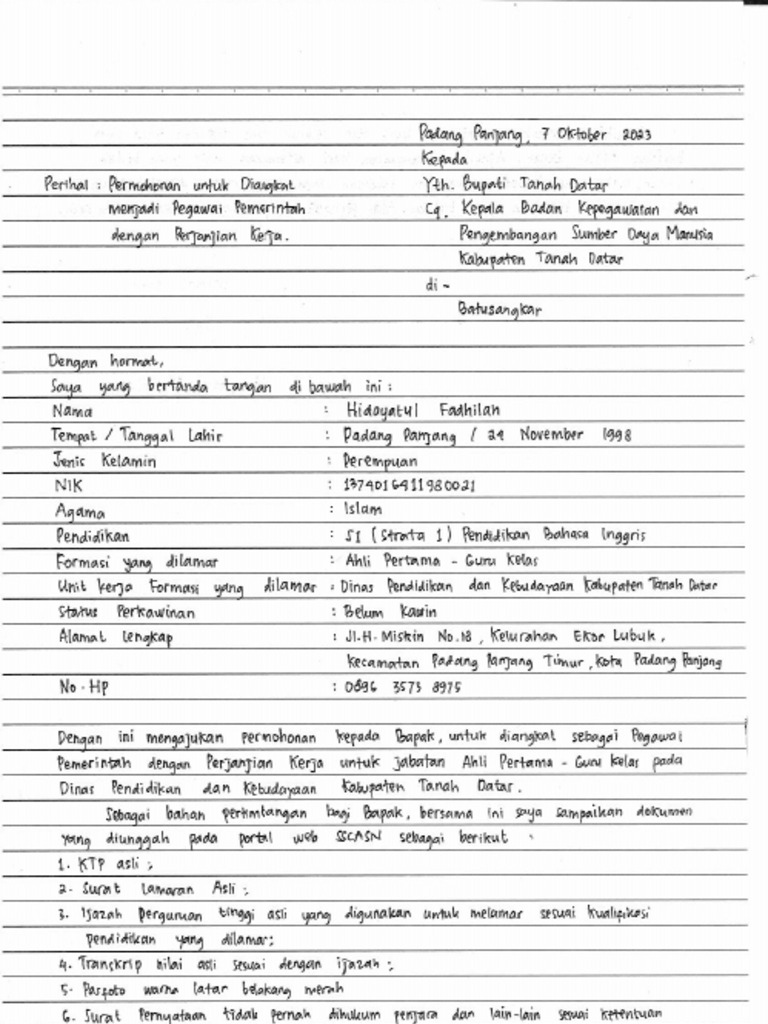 Padang Panjang, 7 Oktober 2023
Kepada
Perihal : Permohonan untuk Diangkat Yth. Bupati Tanah Datar
menjadi Pegawai Pemerintah Cq. Kepala Badan Kepegawaian dan
dengan Perjanjian Kerja. Pengembangan Sumber Daya Manusia
Kabupaten Tanah Datar
di -
Batusangkar
Dengan hormat,
Saya yang bertanda tangan di bawah ini :
Nama : Hidayatul Fadhilah
Tempat / Tanggal Lahir : Padang Panjang / 24 November 1998
Jenis Kelamin : Perempuan
NIK : 1374016411980021
Agama : Islam
Pendidikan : S1 (Strata 1) Pendidikan Bahasa Inggris
Formasi yang dilamar : Ahli Pertama - Guru Kelas
Unit kerja Formasi yang dilamar : Dinas Pendidikan dan Kebudayaan Kabupaten Tanah Datar
Status Perkawinan : Belum Kawin
Alamat Lengkap : Jl. H. Miskin No.18, Kelurahan Ekor Lubuk,
Kecamatan Padang Panjang Timur, Kota Padang Panjang
No. HP : 0896 3573 8975
Dengan ini mengajukan permohonan kepada Bapak, untuk diangkat sebagai Pegawai
Pemerintah dengan Perjanjian Kerja untuk jabatan Ahli Pertama - Guru Kelas pada
Dinas Pendidikan dan Kebudayaan Kabupaten Tanah Datar.
Sebagai bahan pertimtangan bagi Bapak, bersama ini saya sampaikan dokumen
yang diunggah pada portal web SSCASN sebagai berikut :
1. KTP asli ;
2. Surat Lamaran Asli ;
3. Ijazah perguruan tinggi asli yang digunakan untuk melamar sesuai kualifikasi
pendidikan yang dilamar;
4. Transkrip nilai asli sesuai dengan ijazah ;
5. Pasfoto warna latar belakang merah
6. Surat Pernyataan tidak pernah dihukum penjara dan lain-lain sesuai ketentuan